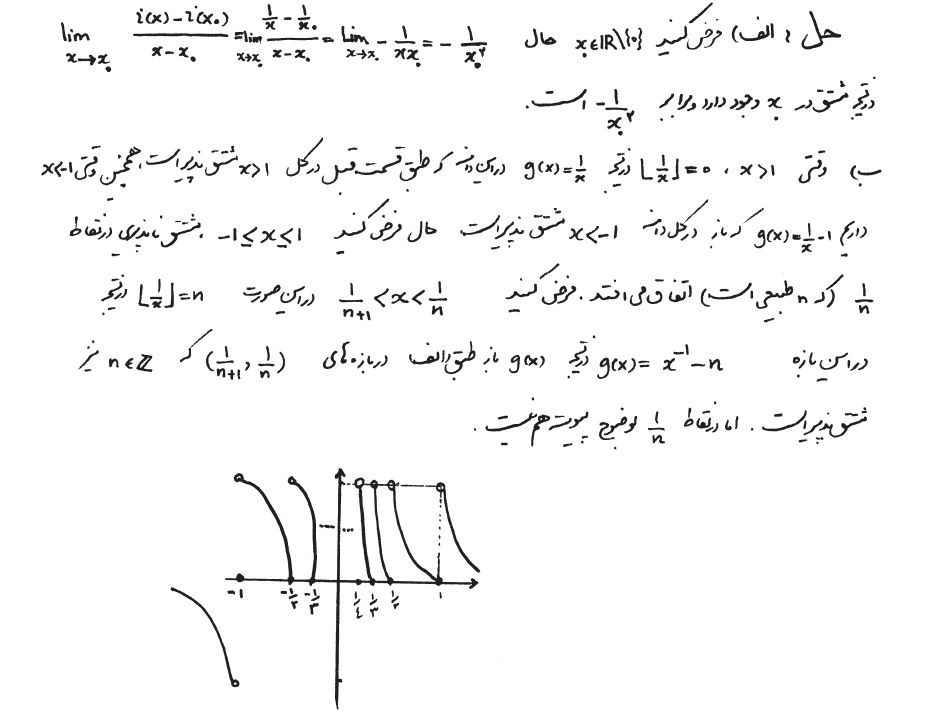 حل : الف) فرض کنید x₀∈ℝ\{0} حال lim_{x→x₀} (i(x)-i(x₀))/(x-x₀) = lim_{x→x₀} (1/x - 1/x₀)/(x-x₀) = lim_{x→x₀} -1/(xx₀) = -1/x₀²
درنتیجه مشتق در x₀ وجود دارد و برابر -1/x₀² است.
ب) وقتی x>1 ، ⌊1/x⌋=0 درنتیجه g(x)=1/x در این دامنه که طبق قسمت قبل در کل x>1 مشتق پذیر است، همچنین وقتی x<-1
داریم g(x)=1/x-1 که باز در کل دامنه x<-1 مشتق پذیر است حال فرض کنید -1≤x≤1 ، مشتق ناپذیری در نقاط
1/n (که n طبیعی است) اتفاق می افتد . فرض کنید 1/(n+1) <x< 1/n در این صورت ⌊1/x⌋=n درنتیجه
در این بازه g(x)= x⁻¹-n درنتیجه g(x) باز طبق (الف) در بازه های (1/(n+1), 1/n) که n∈ℤ نیز
مشتق پذیر است . اما در نقاط 1/n بوضوح پیوسته هم نیست .
-1 -1/۲ -1/۳ 1/۴ 1/۳ 1/۲ 1